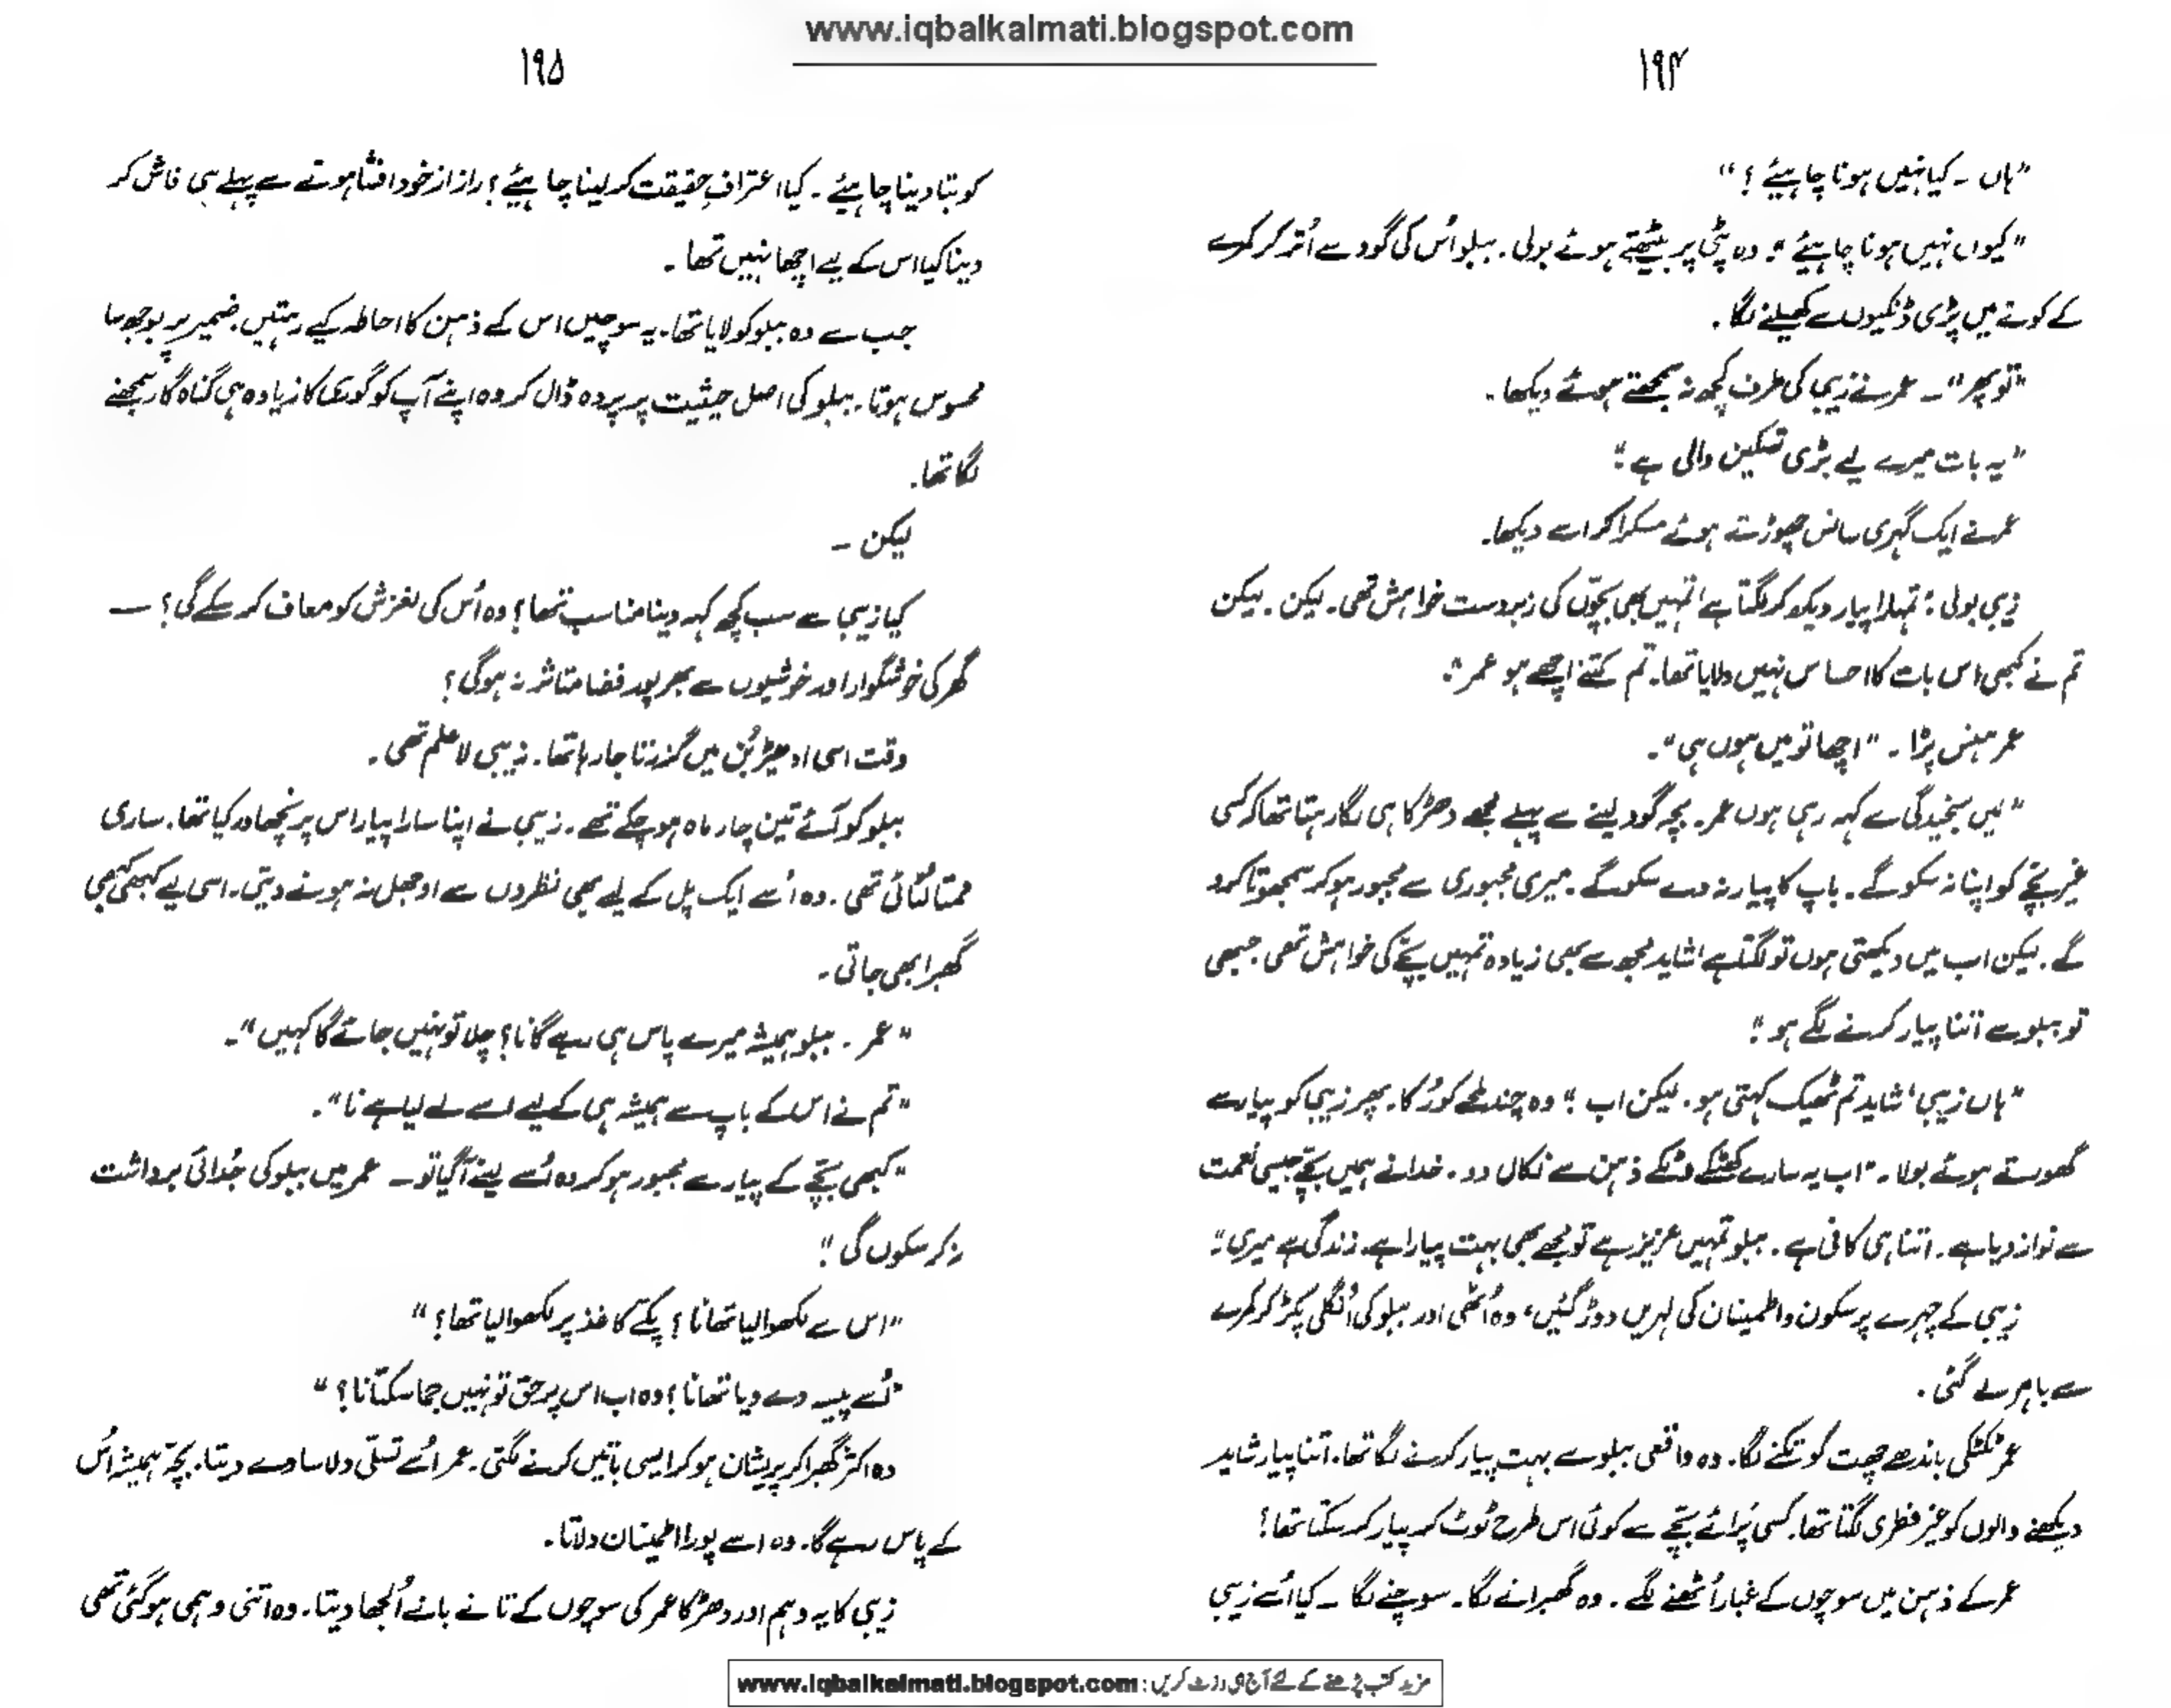 www.iqbalkalmati.blogspot.com
۱۹۴
"ہاں ۔ کیا نہیں ہونا چاہیئے ؟"
"کیوں نہیں ہونا چاہیئے" وہ پٹی پر بیٹھتے ہوئے بولی ۔ ببلو اُس کی گود سے اُتر کر کمرے
کے کونے میں پڑی ڈنکیوں سے کھیلنے لگا ۔
"تو پھر" ۔ عمر نے زیبی کی طرف کچھ نہ سمجھتے ہوئے دیکھا ۔
"یہ بات میرے لیے بڑی تسکین والی ہے"
عمر نے ایک گہری سانس چھوڑتے ہوئے مسکرا کر اسے دیکھا ۔
زیبی بولی "تمہارا پیار دیکھ کر لگتا ہے تمہیں بھی بچّوں کی زبردست خواہش تھی ۔ لیکن ۔ لیکن
تم نے کبھی اس بات کا احساس نہیں دلایا تھا ۔ تم کتنے اچھے ہو عمر"
عمر ہنس پڑا ۔ "اچھا تو میں ہوں ہی" ۔
"میں سنجیدگی سے کہہ رہی ہوں عمر ۔ بچہ گود لینے سے پہلے مجھے دھڑکا ہی لگا رہتا تھا کہ کسی
غیر بچّے کو اپنا نہ سکو گے ۔ باپ کا پیار نہ دے سکو گے ۔ میری مجبوری سے مجبور ہو کر سمجھوتا کرو
گے ۔ لیکن اب میں دیکھتی ہوں تو لگتا ہے شاید مجھ سے بھی زیادہ تمہیں بچّے کی خواہش تھی جبھی
تو ببلو سے اتنا پیار کرنے لگے ہو"
"ہاں زیبی شاید تم ٹھیک کہتی ہو ۔ لیکن اب" وہ چند لمحے کو رُکا ۔ پھر زیبی کو پیار سے
گھورتے ہوئے بولا ۔ "اب یہ سارے کھٹکے وٹکے ذہن سے نکال دو ۔ خدا نے ہمیں بچّے جیسی نعمت
سے نواز دیا ہے ۔ اتنا ہی کافی ہے ۔ ببلو تمہیں عزیز ہے تو مجھے بھی بہت پیارا ہے ۔ زندگی ہے میری"
زیبی کے چہرے پر سکون و اطمینان کی لہریں دوڑ گئیں، وہ اُٹھی اور ببلو کی اُنگلی پکڑ کر کمرے
سے باہر لے گئی ۔
عمر ٹکٹکی باندھے چھت کو تکنے لگا ۔ وہ واقعی ببلو سے بہت پیار کرنے لگا تھا ۔ اتنا پیار شاید
دیکھنے والوں کو غیر فطری لگتا تھا ۔ کسی پرائے بچّے سے کوئی اس طرح ٹوٹ کر پیار کر سکتا تھا ؟
عمر کے ذہن میں سوچوں کے غبار اُٹھنے لگے ۔ وہ گھبرانے لگا ۔ سوچنے لگا ۔ کیا اُسے زیبی
۱۹۵
کو بتا دینا چاہیئے ۔ کیا اعترافِ حقیقت کر لینا چاہیئے ؟ راز از خود افشا ہونے سے پہلے ہی فاش کر
دینا کیا اس کے لیے اچھا نہیں تھا ۔
جب سے وہ ببلو کو لایا تھا ۔ یہ سوچیں اس کے ذہن کا احاطہ کیے رہتیں ۔ ضمیر پر بوجھ سا
محسوس ہوتا ۔ ببلو کی اصل حیثیت پر پردہ ڈال کر وہ اپنے آپ کو گوری کا زیادہ ہی گناہ گار سمجھنے
لگا تھا ۔
لیکن ۔
کیا زیبی سے سب کچھ کہہ دینا مناسب تھا ؟ وہ اُس کی لغزش کو معاف کر سکے گی ؟ ۔
گھر کی خوشگوار اور خوشیوں سے بھرپور فضا متاثر نہ ہوگی ؟
وقت اسی ادھیڑ بُن میں گزرتا جا رہا تھا ۔ زیبی لا علم تھی ۔
ببلو کو آئے تین چار ماہ ہو چکے تھے ۔ زیبی نے اپنا سارا پیار اس پر نچھاور کیا تھا ۔ ساری
ممتا لٹائی تھی ۔ وہ اُسے ایک پل کے لیے بھی نظروں سے اوجھل نہ ہونے دیتی ۔ اسی لیے کبھی کبھی
گھبرا بھی جاتی ۔
"عمر ۔ ببلو ہمیشہ میرے پاس ہی رہے گا نا ؟ چلا تو نہیں جائے گا کہیں" ۔
"تم نے اس کے باپ سے ہمیشہ ہی کے لیے اسے لے لیا ہے نا" ۔
"کبھی بچّے کے پیار سے مجبور ہو کر وہ اُسے لینے آگیا تو ۔ عمر میں ببلو کی جُدائی برداشت
نہ کر سکوں گی"
"اس سے لکھوا لیا تھا نا ؟ پکے کاغذ پر لکھوا لیا تھا ؟"
"اُسے پیسہ دے دیا تھا نا ؟ وہ اب اس پر حق تو نہیں جما سکتا نا ؟"
وہ اکثر گھبرا کر پریشان ہو کر ایسی باتیں کرنے لگتی ۔ عمر اُسے تسلّی دلاسا دے دیتا ۔ بچّہ ہمیشہ اُس
کے پاس رہے گا ۔ وہ اسے پورا اطمینان دلاتا ۔
زیبی کا یہ وہم اور دھڑکا عمر کی سوچوں کے تانے بانے اُلجھا دیتا ۔ وہ اتنی وہمی ہو گئی تھی
مزید کتب پڑھنے کے لئے آج ہی وزٹ کریں : www.iqbalkalmati.blogspot.com